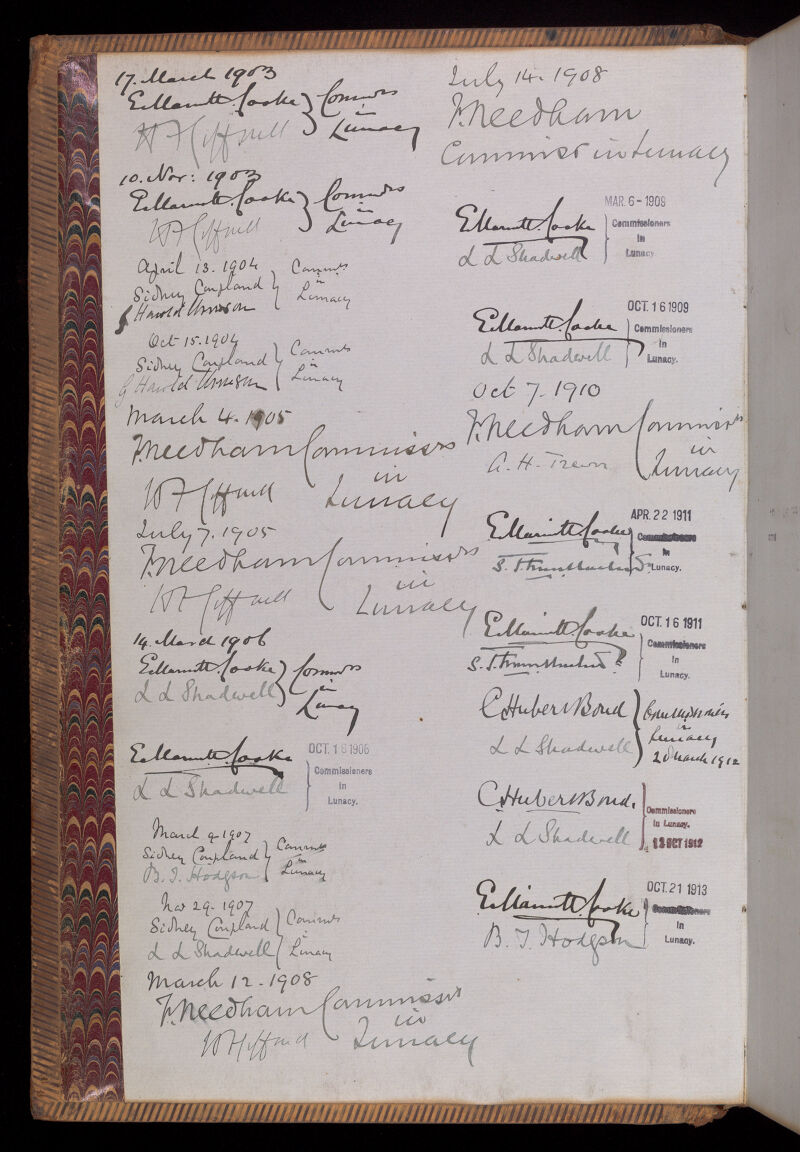 17. March 1903
E. Marriott Cooke } Commrs
W H Gifford in Lunacy
10. Nov: 1903
E. Marriott Cooke } Commrs
in Lunacy
April 13. 1904
Sidney Coupland } Commrs
Harold Urmson in Lunacy
Oct 15. 1904
Sidney Coupland } Commrs
G Harold Urmson in Lunacy
March 4. 1905
F. Needham Commissrs
in
Lunacy
July 7. 1905
F. Needham Commissrs
in
Lunacy
14. March 1906
E. Marriott Cooke } Commrs
L L Shadwell in Lunacy
E. Marriott Cooke
L L Shadwell
OCT. 16 1906
Commissioners
in
Lunacy.
March 9. 1907
Sidney Coupland } Commrs
B. T. Hodgson in Lunacy
Nov 29. 1907
Sidney Coupland } Commrs
L L Shadwell in Lunacy
March 12. 1908
F. Needham Commissrs
in
Lunacy
July 14. 1908
F. Needham
Commissr in Lunacy
MAR. 6 - 1909
E. Marriott Cooke
L L Shadwell
Commissioners
in
Lunacy
OCT. 16 1909
E. Marriott Cooke
L L Shadwell
Commissioners
in
Lunacy.
Oct 7. 1910
F. Needham Commissrs
A. H. Trevor in Lunacy
APR. 22 1911
E. Marriott Cooke
Commissioners
in
Lunacy.
OCT. 16 1911
E. Marriott Cooke
Commissioners
in
Lunacy.
C Hubert Bond
L L Shadwell
Commissioners
in
Lunacy
2 March 1912
C Hubert Bond.
L L Shadwell
Commissioners
in Lunacy.
12 OCT 1912
OCT. 21 1913
E. Marriott Cooke
B. T. Hodgson
Commissioners
in
Lunacy.